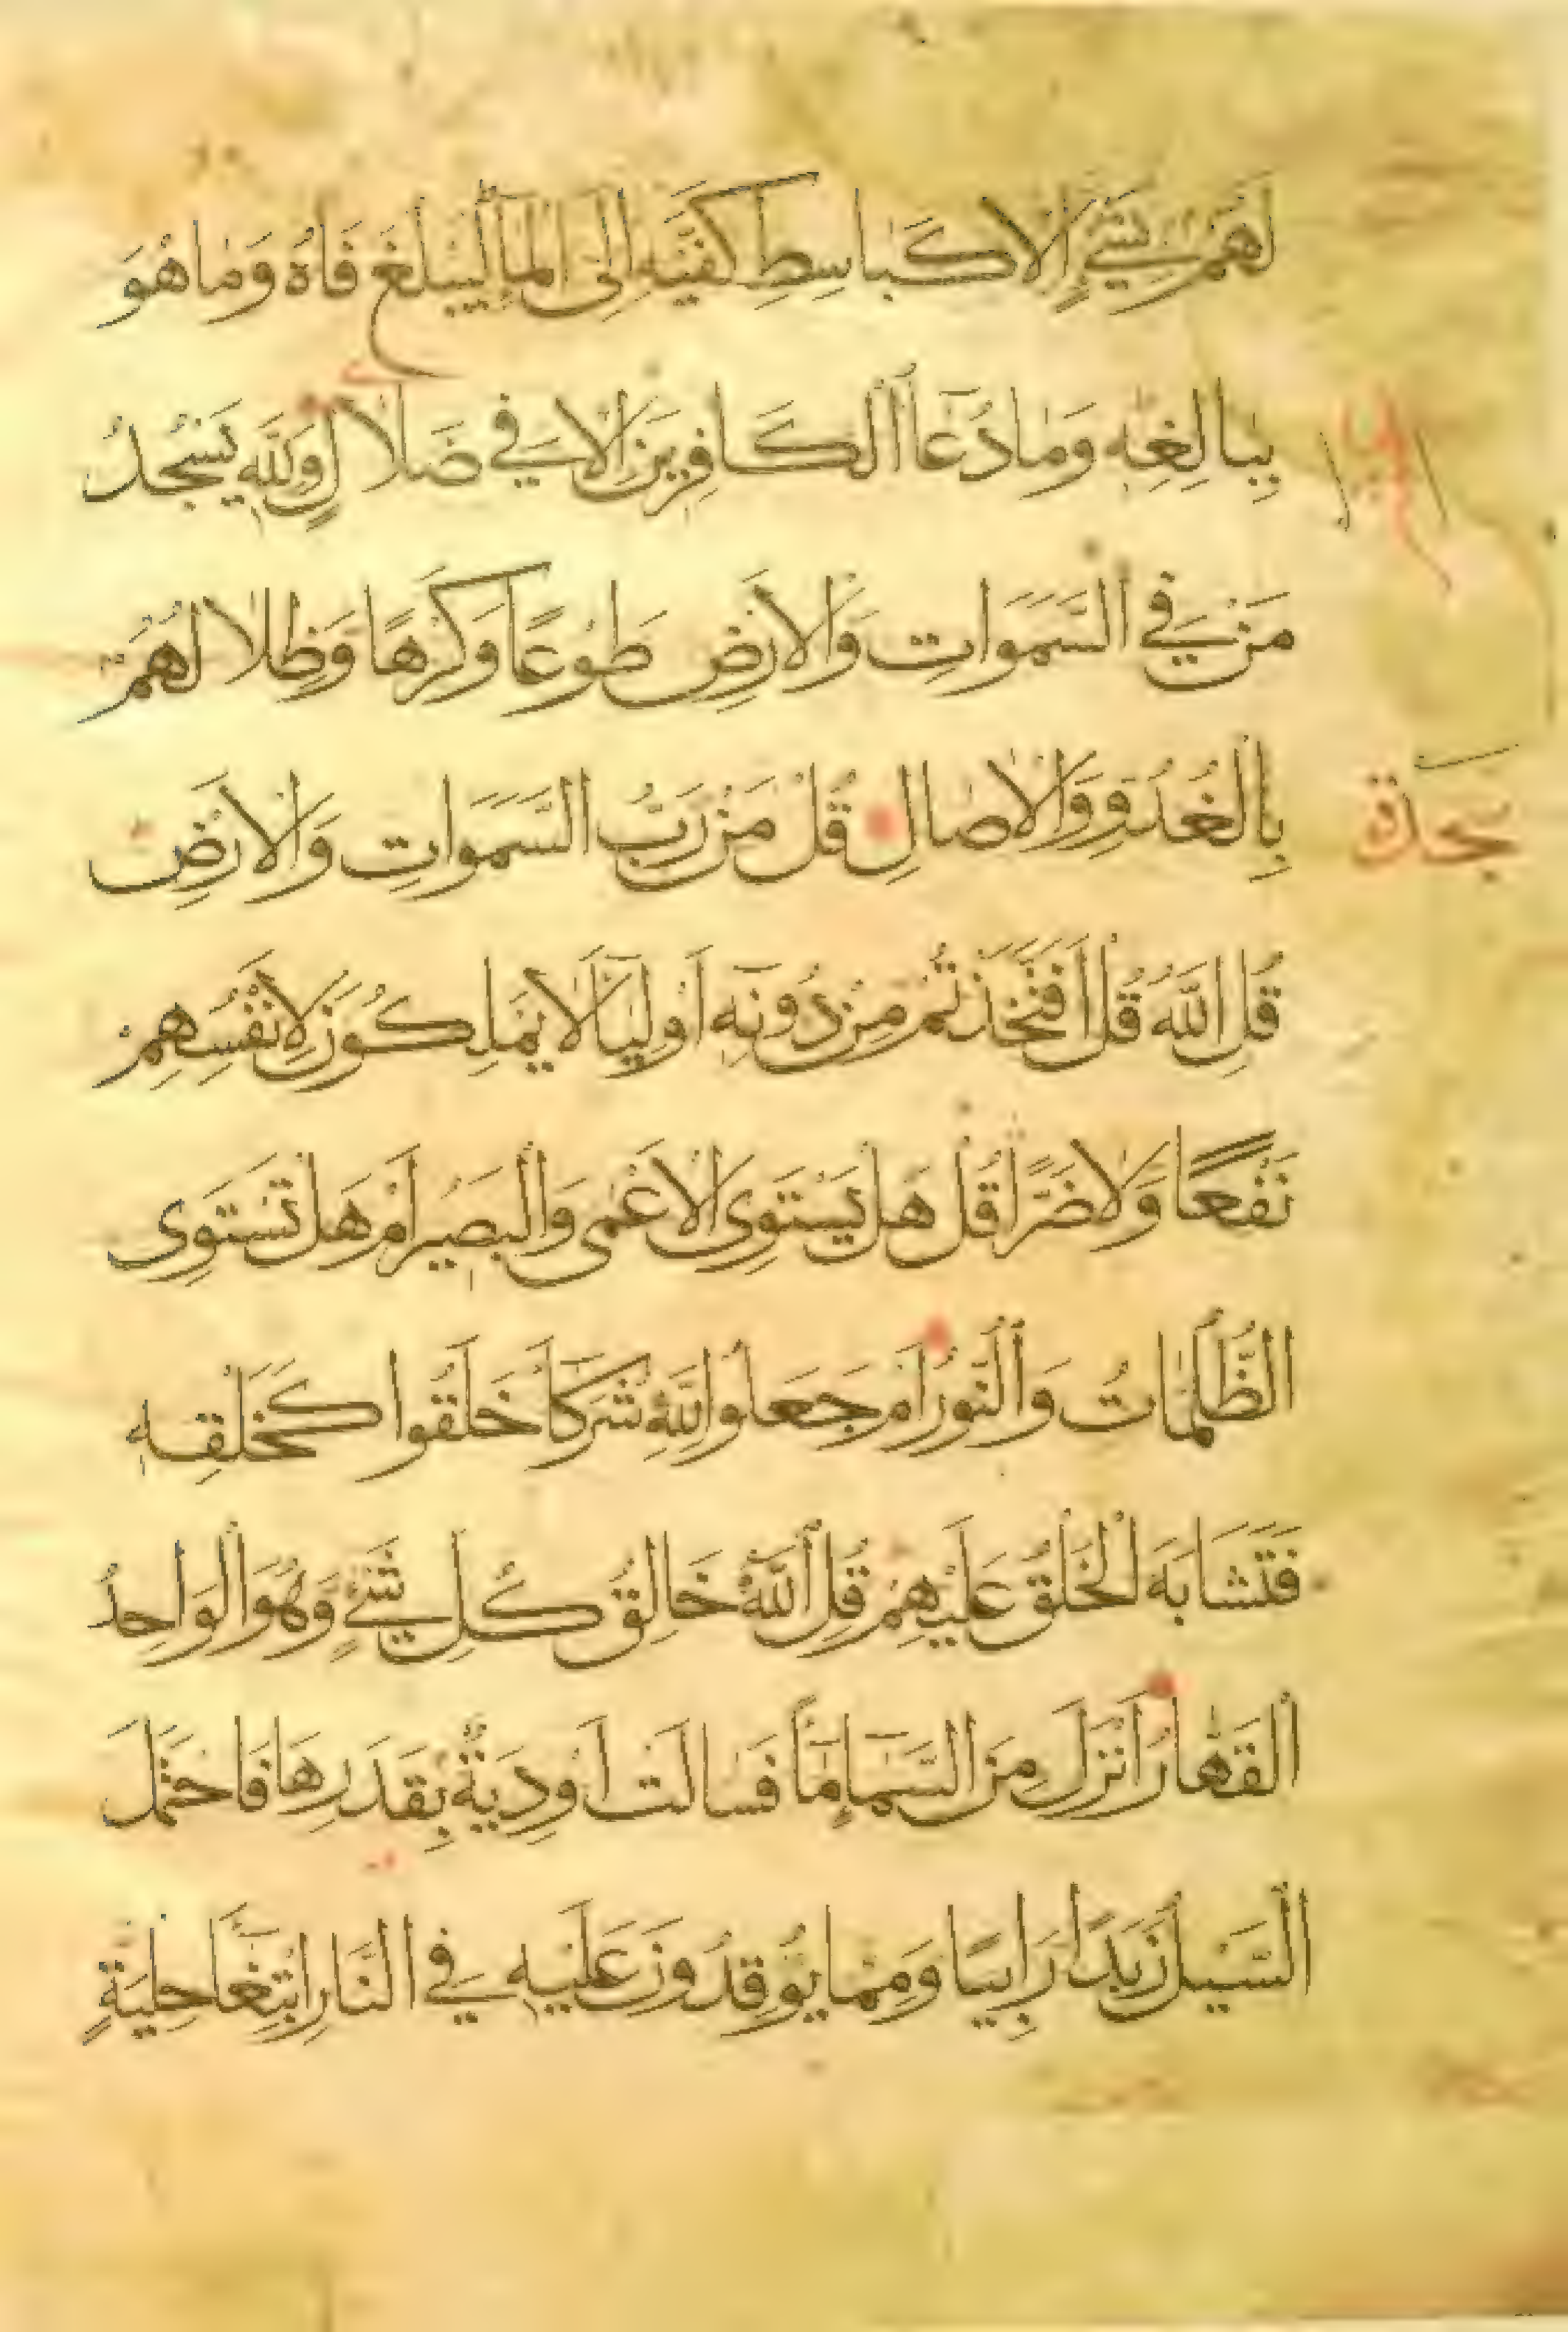 لَهُمْ بِشَيْءٍ اِلَّا كَبَاسِطِ كَفَّيْهِ اِلَى الْمَآءِ لِيَبْلُغَ فَاهُ وَمَا هُوَ
بِبَالِغِهِ وَمَا دُعَآءُ الْكَافِرِينَ اِلَّا فِي ضَلَالٍ وَلِلّٰهِ يَسْجُدُ
مَنْ فِي السَّمَوَاتِ وَالْاَرْضِ طَوْعًا وَكَرْهًا وَظِلَالُهُمْ
بِالْغُدُوِّ وَالْاٰصَالِ قُلْ مَنْ رَبُّ السَّمَوَاتِ وَالْاَرْضِ
سجدة
قُلِ اللّٰهُ قُلْ اَفَتَّخَذْتُمْ مِنْ دُونِهِ اَوْلِيَآءَ لَا يَمْلِكُونَ لِاَنْفُسِهِمْ
نَفْعًا وَلَا ضَرًّا قُلْ هَلْ يَسْتَوِى الْاَعْمٰى وَالْبَصِيرُ اَمْ هَلْ تَسْتَوِى
الظُّلُمَاتُ وَالنُّورُ اَمْ جَعَلُوا لِلّٰهِ شُرَكَآءَ خَلَقُوا كَخَلْقِهِ
فَتَشَابَهَ الْخَلْقُ عَلَيْهِمْ قُلِ اللّٰهُ خَالِقُ كُلِّ شَيْءٍ وَهُوَ الْوَاحِدُ
الْقَهَّارُ اَنْزَلَ مِنَ السَّمَآءِ مَآءً فَسَالَتْ اَوْدِيَةٌ بِقَدَرِهَا فَاحْتَمَلَ
السَّيْلُ زَبَدًا رَابِيًا وَمِمَّا يُوقِدُونَ عَلَيْهِ فِي النَّارِ ابْتِغَآءَ حِلْيَةٍ